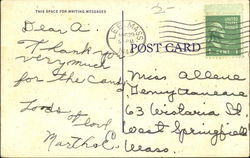 THIS SPACE FOR WRITING MESSAGES
Dear A.
Thank you
very much
for the candy
Loads of
Love
Martha E.
LEE MASS
POST CARD
Miss Allene
63 Wistaria St
West Springfield
Mass.